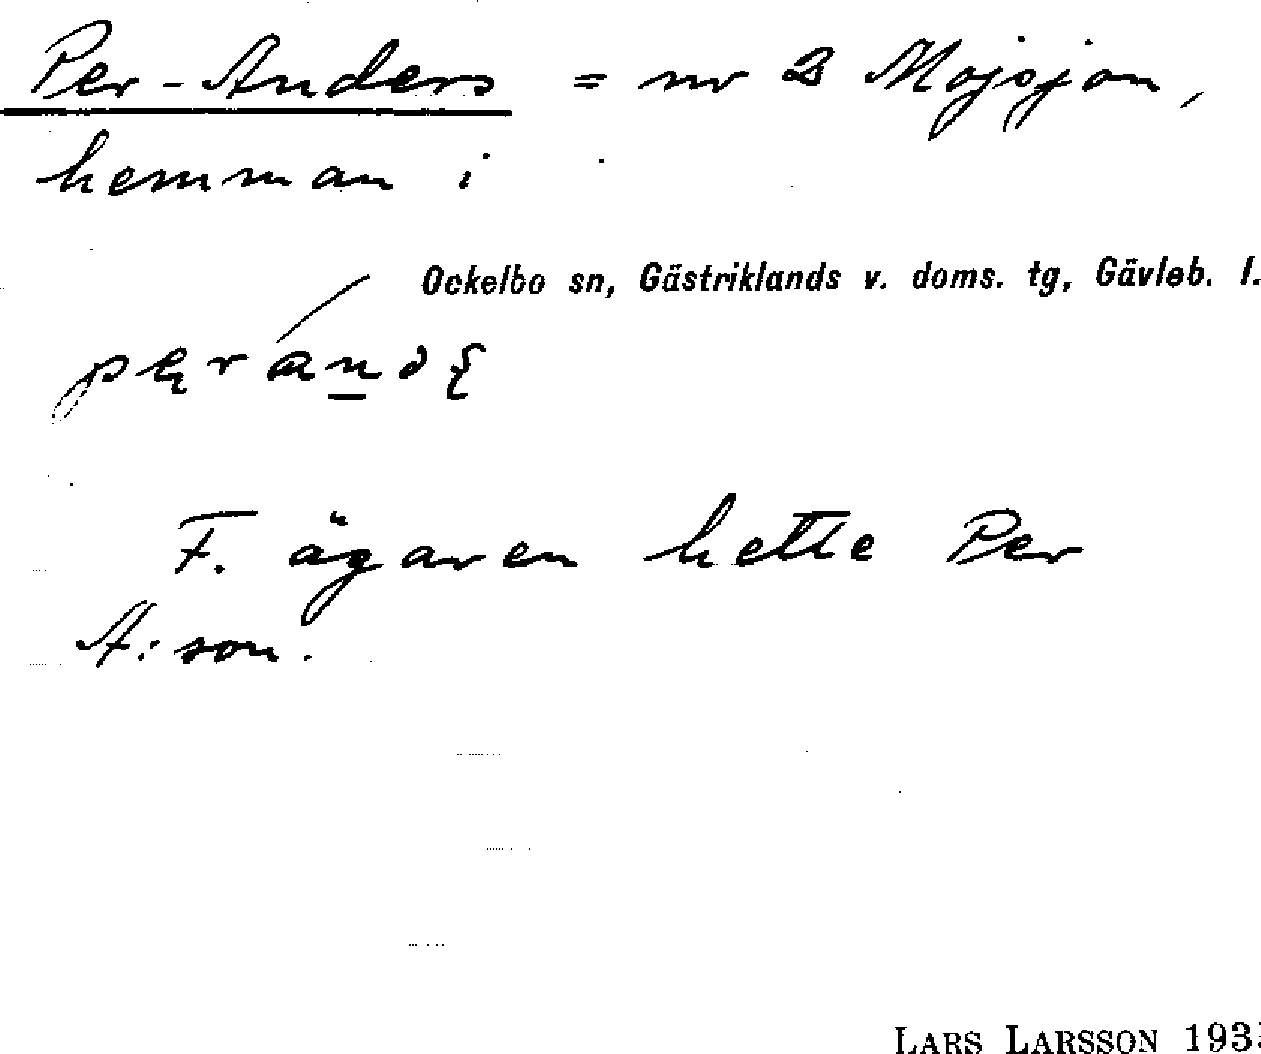 Per-Anders = nr 2 Mojsjon,
hemman i
Ockelbo sn, Gästriklands v. doms. tg, Gävleb. l.
F. ägaren hette Per
A:son.
LARS LARSSON 193